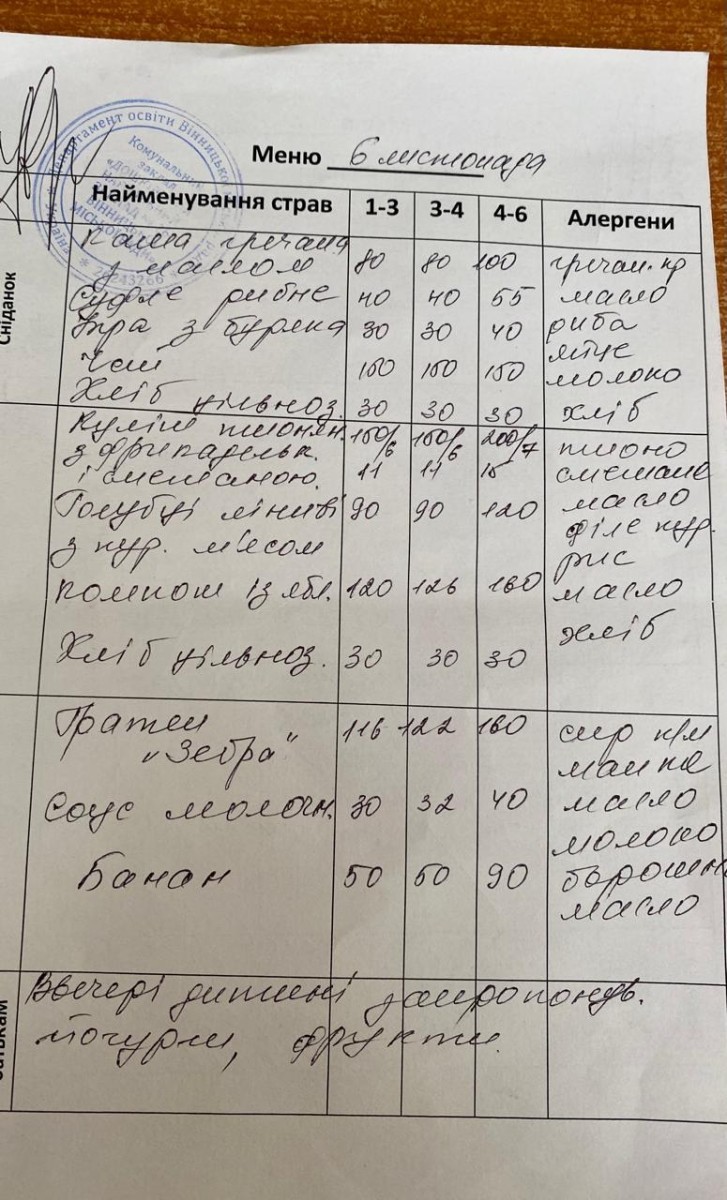 Департамент освіти Вінницької
Комунальний
заклад
Меню 6 листопада
Найменування страв 1-3 3-4 4-6 Алергени
Сніданок
Каша гречана
з маслом 80 80 100 гречан. кр
Суфле рибне 40 40 55 масло
Ікра з буряка 30 30 40 риба
яйце
Чай 150 150 150 молоко
Хліб цільноз. 30 30 30 хліб
Куліш пшонян. 150/6 150/6 200/7 пшоно
з фрикадельк.
і сметаною. 11 11 15 сметана
Голубці ліниві 90 90 120 масло
філе кур.
з кур. м'ясом рис
Компот із ябл. 120 126 160 масло
хліб
Хліб цільноз. 30 30 30
Гратен 116 122 160 сир к/м
"Зебра" манка
Соус молочн. 30 32 40 масло
молоко
Банан 50 50 90 борошн
масло
Ввечері дитині запропонув.
йогурт, фрукти.